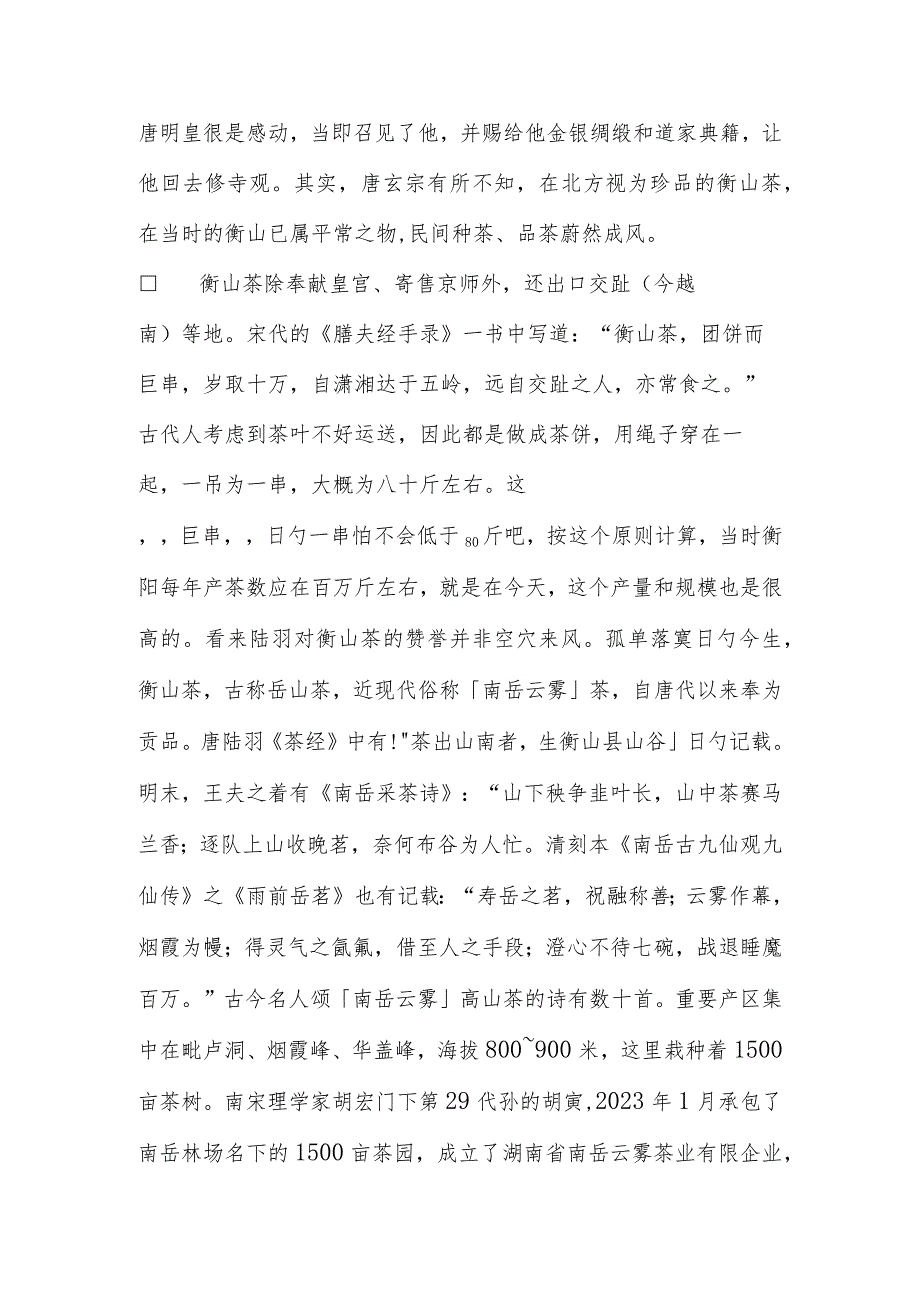 唐明皇很是感动，当即召见了他，并赐给他金银绸缎和道家典籍，让
他回去修寺观。其实，唐玄宗有所不知，在北方视为珍品的衡山茶，
在当时的衡山已属平常之物,民间种茶、品茶蔚然成风。
□ 衡山茶除奉献皇宫、寄售京师外，还出口交趾（今越
南）等地。宋代的《膳夫经手录》一书中写道：“衡山茶，团饼而
巨串，岁取十万，自潇湘达于五岭，远自交趾之人，亦常食之。”
古代人考虑到茶叶不好运送，因此都是做成茶饼，用绳子穿在一
起，一吊为一串，大概为八十斤左右。这
，，巨串，，日勺一串怕不会低于80斤吧，按这个原则计算，当时衡
阳每年产茶数应在百万斤左右，就是在今天，这个产量和规模也是很
高的。看来陆羽对衡山茶的赞誉并非空穴来风。孤单落寞日勺今生，
衡山茶，古称岳山茶，近现代俗称「南岳云雾」茶，自唐代以来奉为
贡品。唐陆羽《茶经》中有!"茶出山南者，生衡山县山谷」日勺记载。
明末，王夫之着有《南岳采茶诗》：“山下秧争韭叶长，山中茶赛马
兰香；逐队上山收晚茗，奈何布谷为人忙。清刻本《南岳古九仙观九
仙传》之《雨前岳茗》也有记载：“寿岳之茗，祝融称善；云雾作幕，
烟霞为幔；得灵气之氤氲，借至人之手段；澄心不待七碗，战退睡魔
百万。”古今名人颂「南岳云雾」高山茶的诗有数十首。重要产区集
中在毗卢洞、烟霞峰、华盖峰，海拔800~900米，这里栽种着1500
亩茶树。南宋理学家胡宏门下第29代孙的胡寅,2023年1月承包了
南岳林场名下的1500亩茶园，成立了湖南省南岳云雾茶业有限企业，